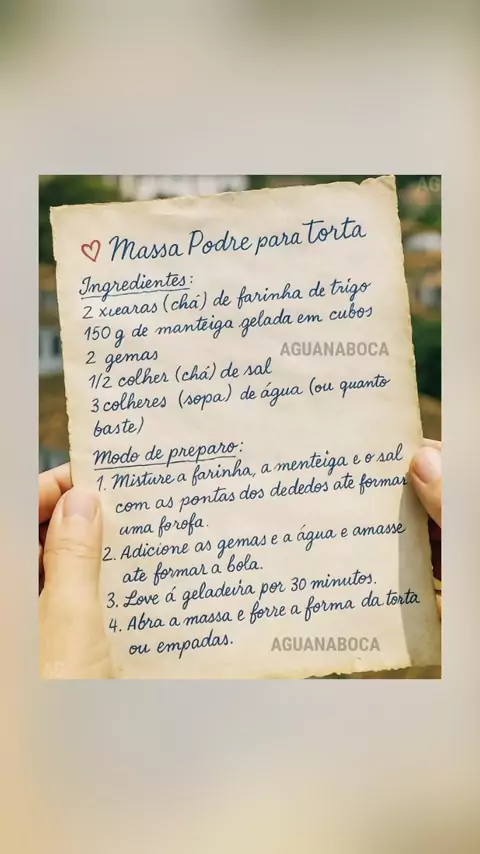 Massa Podre para torta
Ingredientes:
2 xıearas (chá) de farinha de trigo
150 g de manteiga gelada em cubos
2 gemas
AGUANABOCA
1/2 colher (chá) de sal
3 colheres (sopa) de água (ou quanto
baste)
Modo de preparo:
1. Misture a farinha, a menteiga e o sal
com as pontas dos dededos ate formar
uma forofa.
2. Adicione as gemas e a água e amasse
ate formar a bola.
3. Love á geladeira por 30 minutos.
4. Abra a massa e forre a forma da torta
ou empadas.
AGUANABOCA
AG